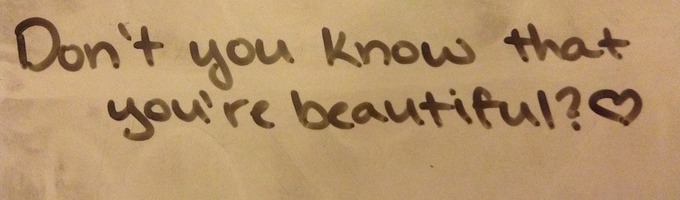 Don't you know that
you're beautiful?♡